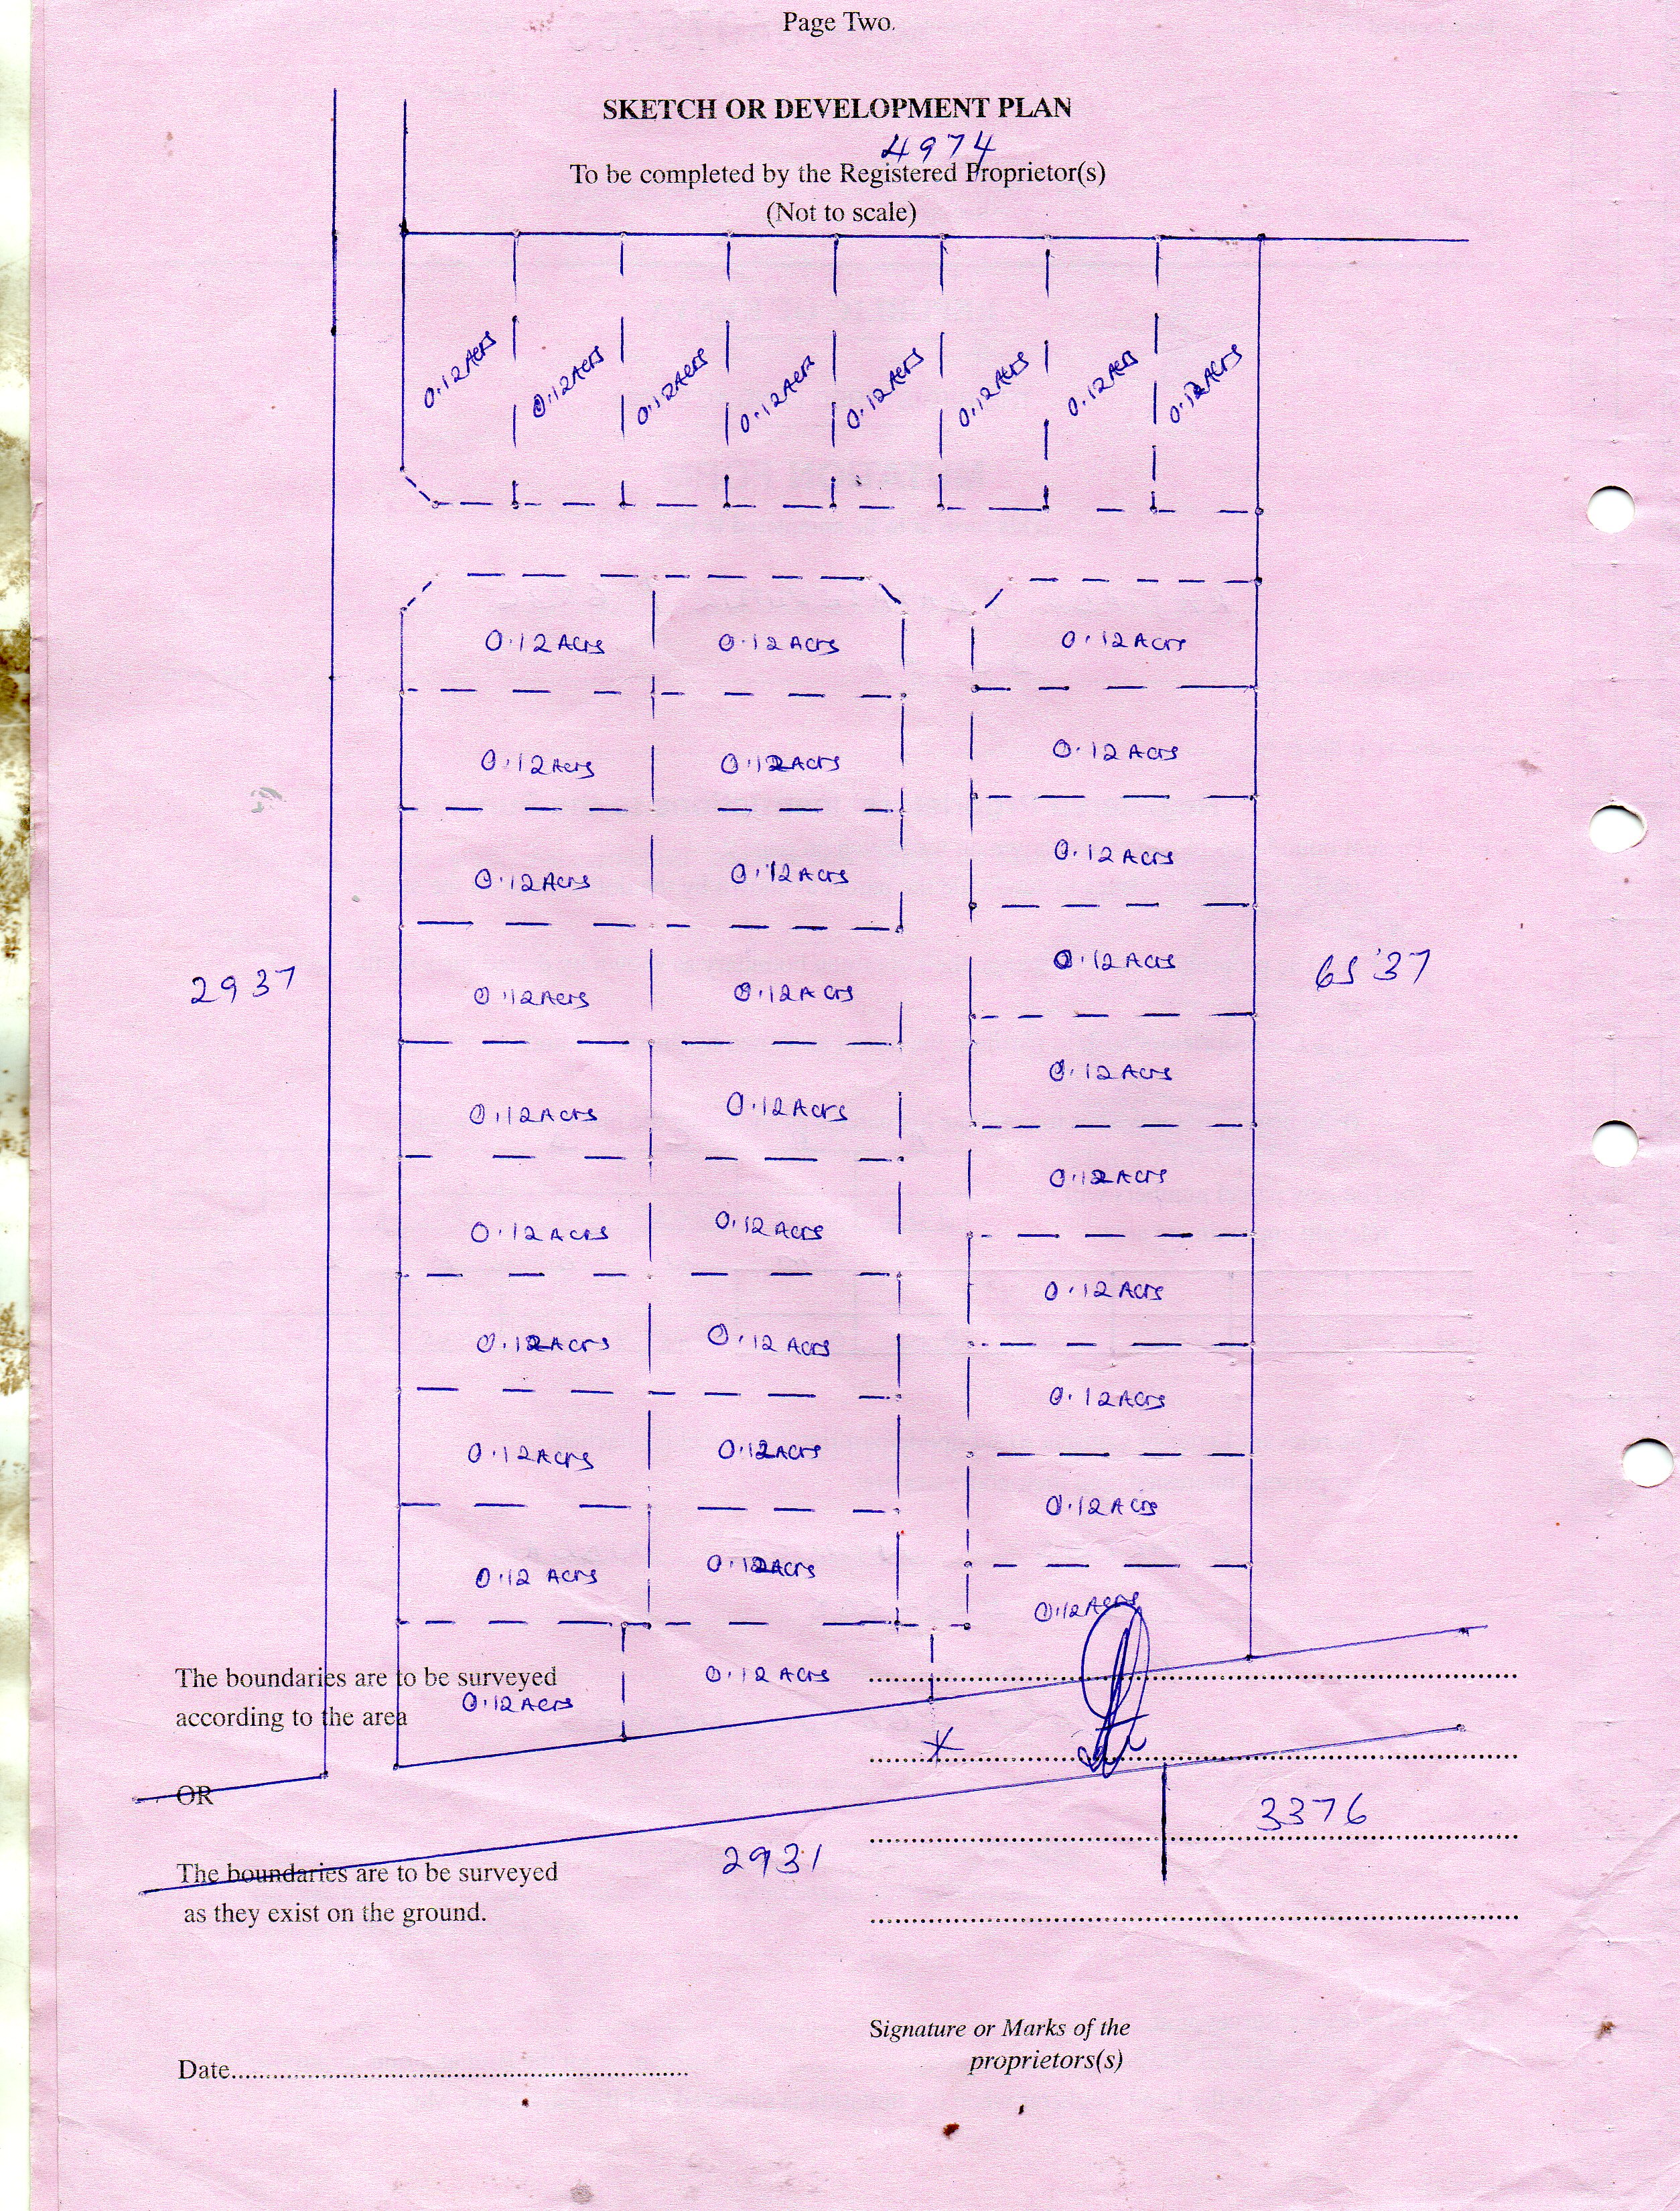 Page Two.
SKETCH OR DEVELOPMENT PLAN
4974
To be completed by the Registered Proprietor(s)
(Not to scale)
0.12 Acrs 0.12 Acrs 0.12 Acrs 0.12 Acrs 0.12 Acrs 0.12 Acrs 0.12 Acrs 0.12 Acrs
0.12 Acrs 0.12 Acrs 0.12 Acrs
0.12 Acrs 0.12 Acrs 0.12 Acrs
0.12 Acrs 0.12 Acrs 0.12 Acrs
2937 0.12 Acrs 0.12 Acrs 0.12 Acrs 6537
0.12 Acrs 0.12 Acrs 0.12 Acrs
0.12 Acrs 0.12 Acrs 0.12 Acrs
0.12 Acrs 0.12 Acrs 0.12 Acrs
0.12 Acrs 0.12 Acrs 0.12 Acrs
0.12 Acrs 0.12 Acrs 0.12 Acrs
0.12 Acrs
0.12 Acrs 0.12 Acrs
The boundaries are to be surveyed
according to the area
OR
3376
2931
The boundaries are to be surveyed
as they exist on the ground.
Signature or Marks of the
proprietors(s)
Date